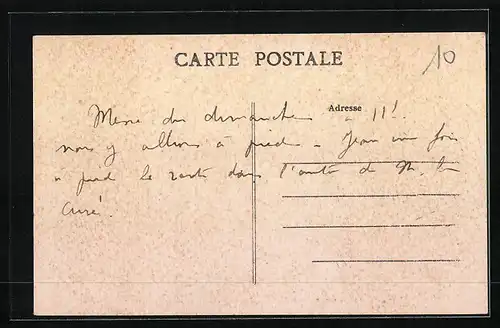 CARTE POSTALE
10
Adresse
Messe du dimanche à 11h
nous y allions à pied - Jean une fois
à pied le reste dans l'auto de M. le
curé.